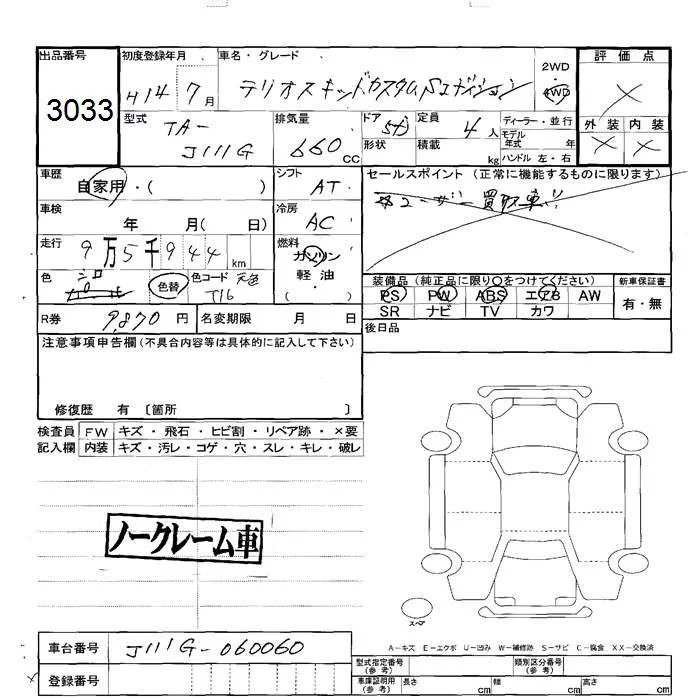 出品番号 初度登録年月 車名・グレード 2WD 4WD 評価点
3033 H14 7月 テリオスキッドカスタムSエディション ×
型式 TA-J111G 排気量 660cc ドア 5ド 形状 定員 4人 積載 kg ディーラー・並行 モデル年式 年 ハンドル 左・右 外装 × 内装 ×
車歴 自家用・( ) シフト AT セールスポイント(正常に機能するものに限ります)
車検 年 月( 日) 冷房 AC ユーザー買取車!!
走行 9万5千944km 燃料 ガソリン 軽油 ( )
色 シロ 色替 色コード T16 装備品(純正品に限り○をつけてください) 新車保証書
PS PW ABS エアB AW 有・無
SR ナビ TV カワ
R券 9,870円 名変期限 月 日 後日品
注意事項申告欄(不具合内容等は具体的に記入して下さい)
修復歴 有 〔箇所 〕
検査員 FW キズ・飛石・ヒビ割・リペア跡・×要
記入欄 内装 キズ・汚レ・コゲ・穴・スレ・キレ・破レ
ノークレーム車
スペア
車台番号 J111G-060060 A−キズ E−エクボ U−凹み W−補修跡 S−サビ C−腐食 XX−交換済
登録番号 型式指定番号(参考) 類別区分番号(参考)
車庫証明用(参考) 長さ cm 幅 cm 高さ cm